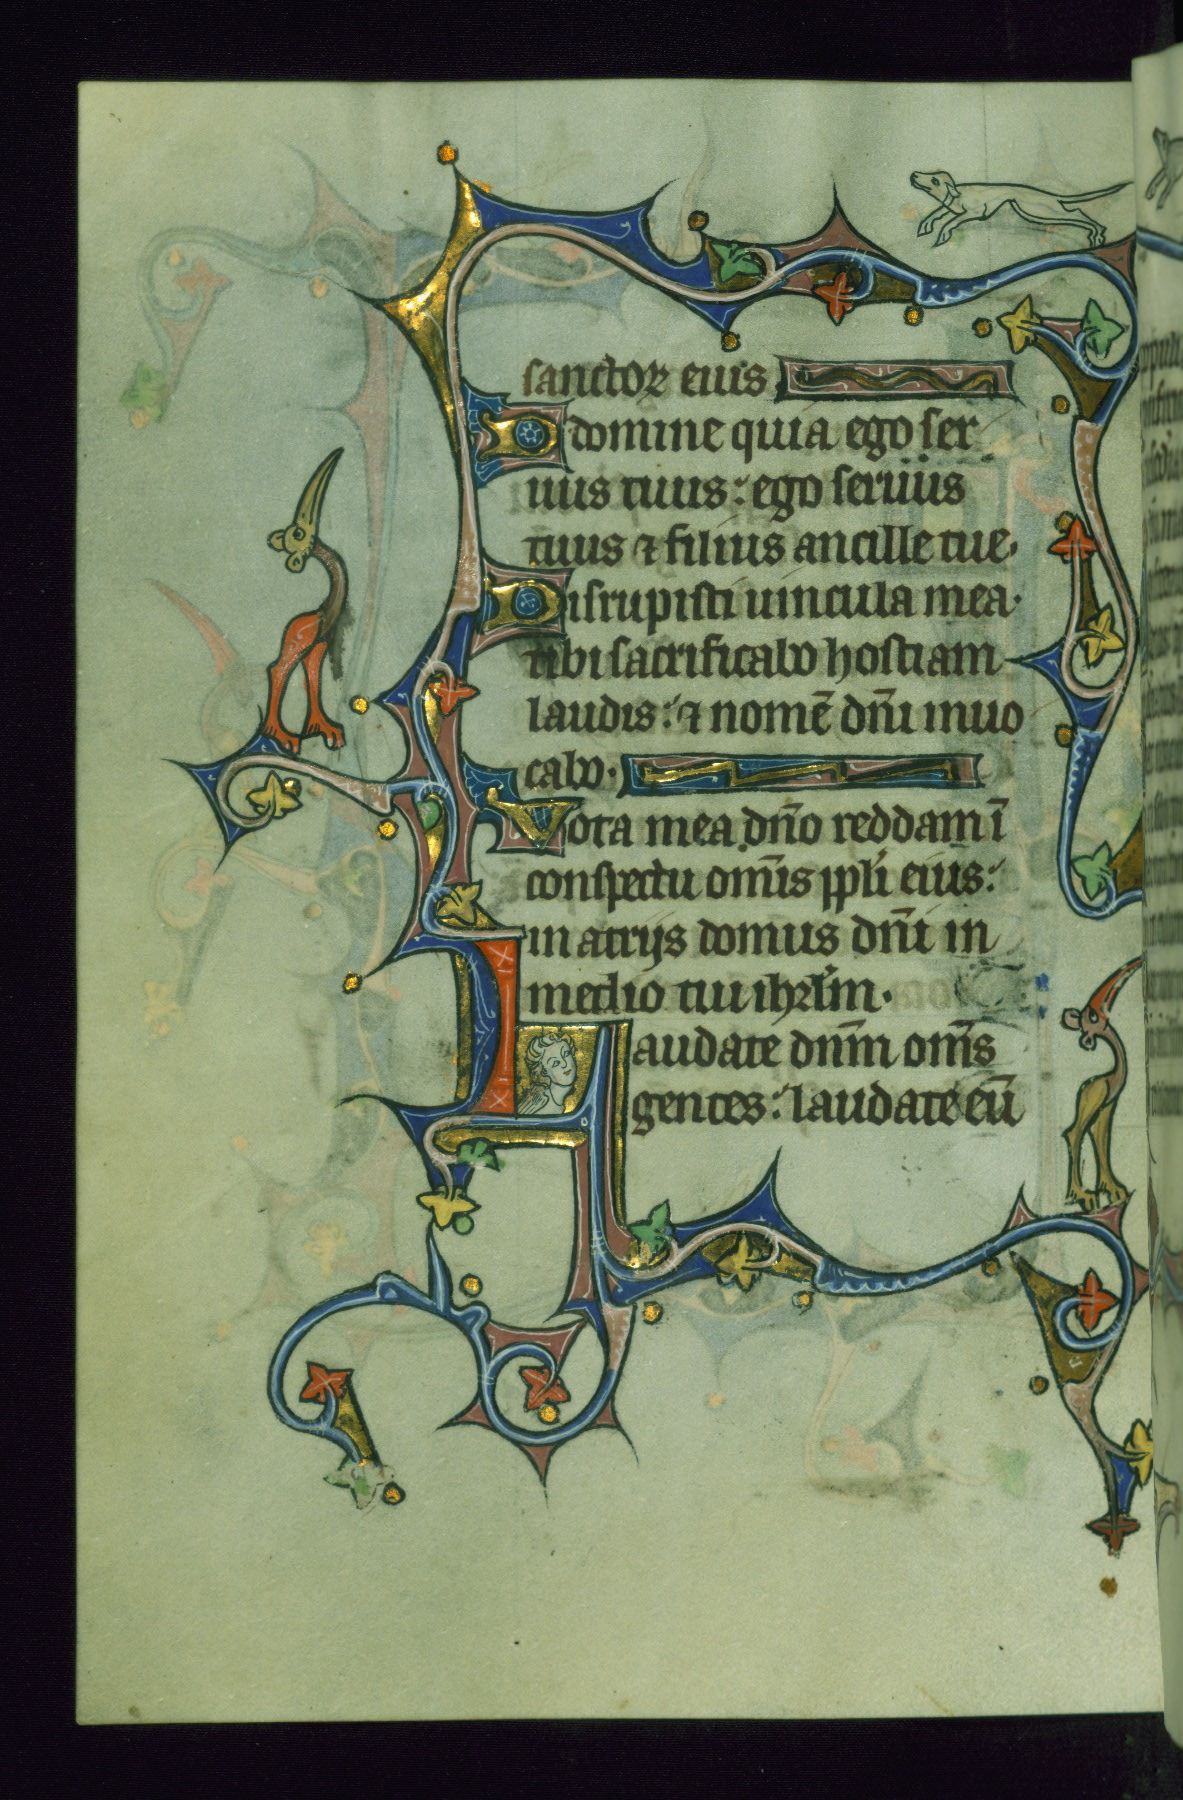 sanctoꝝ eius
O domine quia ego ser
uus tuus: ego seruus
tuus ⁊ filius ancille tue.
Disrupisti uincula mea.
tibi sacrificabo hostiam
laudis: ⁊ nomē dn̄i inuo
cabo.
Uota mea dn̄o reddam ī
conspectu om̄is ppl̄i eius:
in atrijs domus dn̄i in
medio tui ihrl̄m.
Laudate dn̄m om̄s
gentes: laudate eū